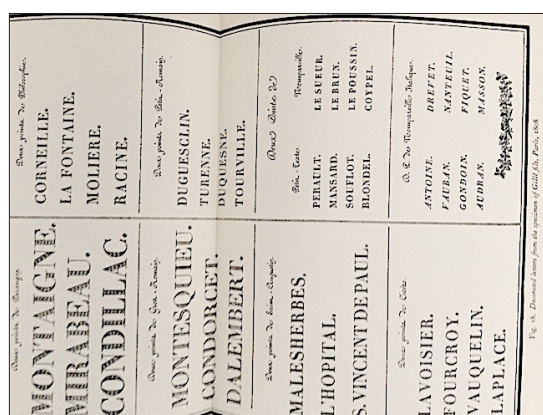 Deux points de Parangon.
MONTAIGNE.
MIRABEAU.
CONDILLAC.
Deux points de Gros-Romain.
MONTESQUIEU.
CONDORCET.
DALEMBERT.
Deux points de Saint-Augustin.
MALESHERBES.
L'HOPITAL.
S. VINCENT DE PAUL.
Deux points de Cicéro.
LAVOISIER.
FOURCROY.
VAUQUELIN.
LAPLACE.
Deux points de Philosophie.
CORNEILLE.
LA FONTAINE.
MOLIERE.
RACINE.
Deux points de Petit-Romain.
DUGUESCLIN.
TURENNE.
DUQUESNE.
TOURVILLE.
Deux Points de
Petit-Texte. Nompareille.
PERAULT. LE SUEUR.
MANSARD. LE BRUN.
SOUFLOT. LE POUSSIN.
BLONDEL. COYPEL.
D. P. de Nompareilles Italiques.
ANTOINE. DREVET.
VAUBAN. NANTEUIL.
GONDOIN. FIQUET.
AUDRAN. MASSON.
Fig. 18. Decorated letters from the specimen of Gillé fils, Paris, 1808